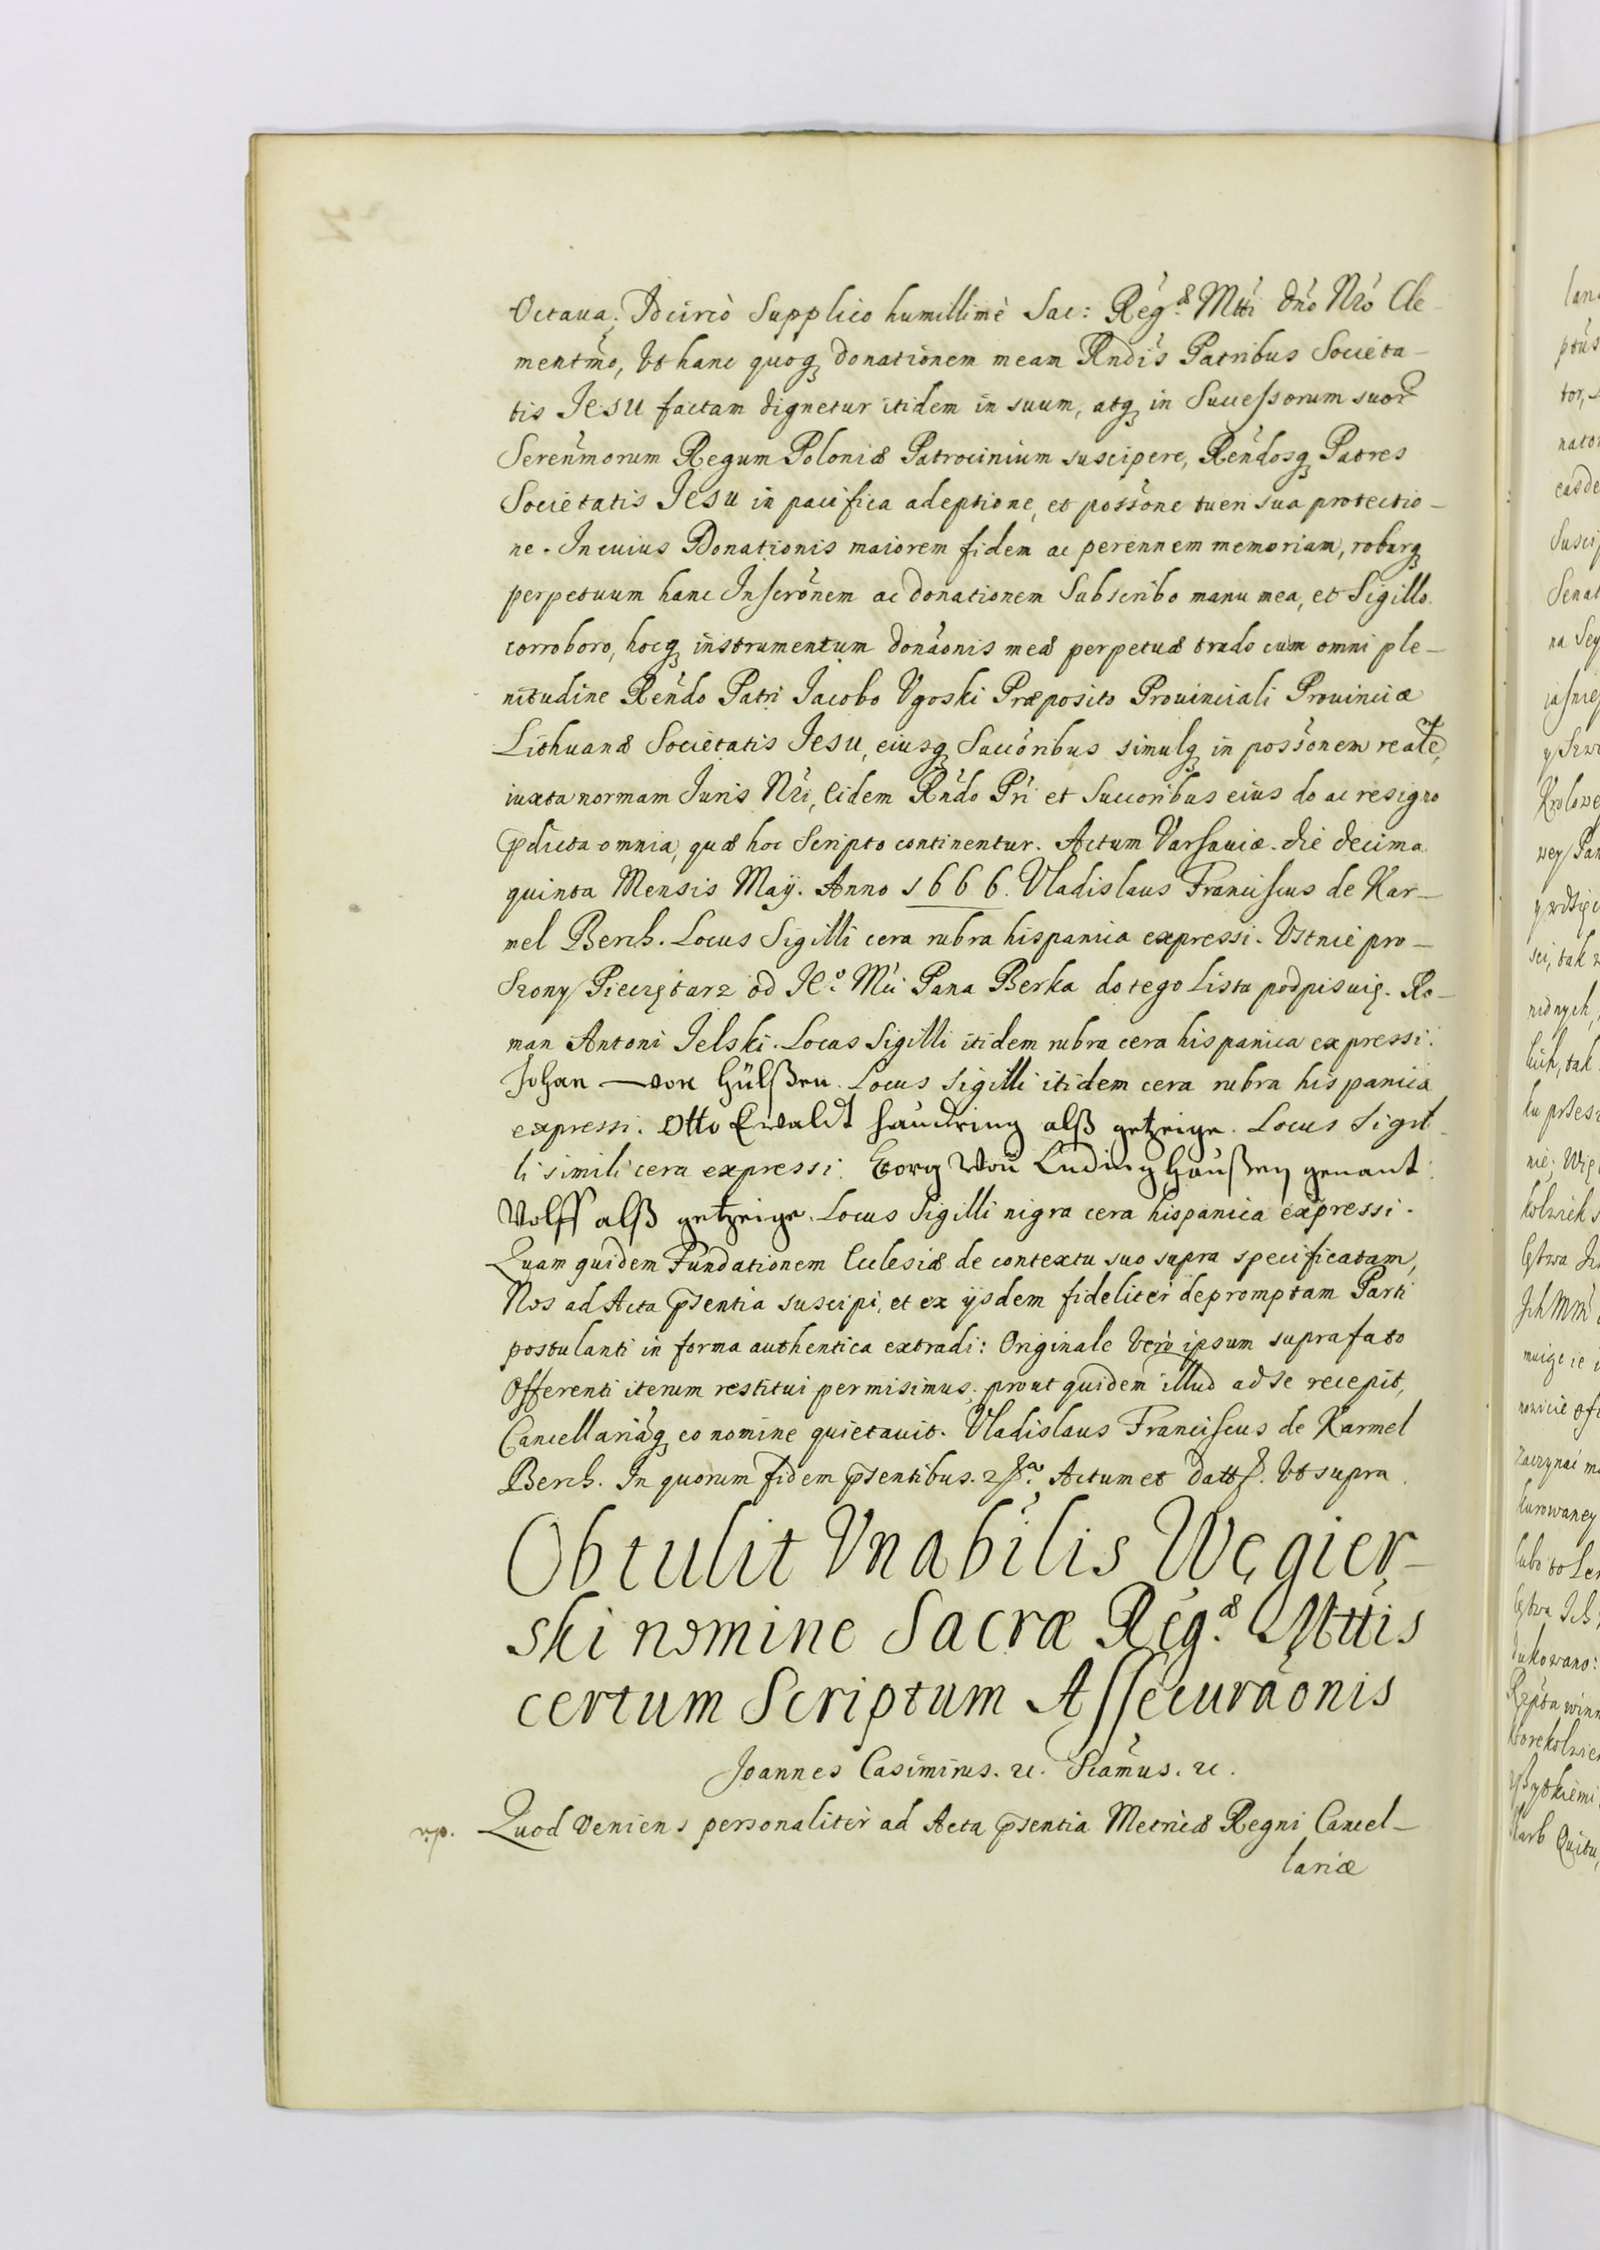 Octaua. Idcircò Supplico humillimè Sac: Reg.æ Mtti Dno Nro Cle-
mentmo, Vt hanc quoq donationem meam Rndis Patribus Societa-
tis Jesu factam dignetur itidem in suum, atq in Successorum suor
Serenmorum Regum Poloniæ Patrocinium suscipere, Rendosq Patres
Societatis Jesu in pacifica adeptione, et possone tueri sua protectio-
ne. In cuius Donationis maiorem fidem ac perennem memoriam, roburq
perpetuum hanc Inscronem ac donationem Subscribo manu mea, et Sigillo
corroboro, hocq instrumentum donaonis meæ perpetuæ trado cum omni ple-
nitudine Rendo Patri Jacobo Vgoski Præposito Prouinciali Prouinciæ
Lithuanæ Societatis Jesu, eiusq Succoribus simulq in possonem realē,
iuxta normam Juris Nri, Eidem Rndo Pri et Succoribus eius do ac resigno
pdicta omnia, quæ hoc Scripto continentur. Actum Varsauiæ. die decima
quinta Mensis Maÿ. Anno 1666. Vladislaus Franciscus de Kar-
mel Berch. Locus Sigilli cera rubra hispanica expressi. Vstnie pro-
szony Pieczętarz od Je.o Mci Pana Berka do tego Listu podpisuię. Ro-
man Antoni Jelski. Locus Sigilli itidem rubra cera hispanica expressi.
Johan von Hülßen. Locus Sigilli itidem cera rubra hispanica
expressi. Otto Ewaldt Haudring alß getzeige. Locus Sigil-
li simili cera expressi. Georg Von Ludinghaußen genant
Wolff alß getzeige. Locus Sigilli nigra cera hispanica expressi.
Quam quidem Fundationem Ecclesiæ de contextu suo supra specificatam,
Nos ad Acta psentia suscipi, et ex ijsdem fideliter depromptam Parti
postulanti in forma authentica extradi: Originale Verò ipsum suprafato
Offerenti iterum restitui permisimus, prout quidem illud ad se recepit,
Cancellariaq eo nomine quietauit. Vladislaus Franciscus de Karmel
Berch. In quorum fidem psentibus. Actum et datt. Vt supra.
Obtulit Vnabilis Węgier-
ski nomine Sacræ Reg.æ Mttis
certum Scriptum Assecuraonis
Joannes Casimirus. rc. Scamus. rc.
Quod Veniens personaliter ad Acta psentia Metricæ Regni Cancel-
lariæ